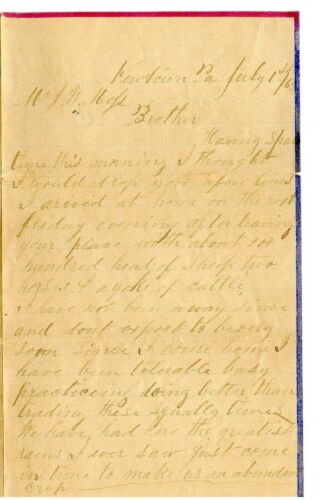 Newtown Pa July 1st
Mr J. W. Moss
Brother
Having Spare
time this morning I thought
I would drop you a few lines
I arrived at home on the
friday evening after leaving
your place with about 200
hundred head of Sheep two
horses & a yoke of cattle
I have not been away Since
and dont expect to be very
soon since I come home I
have been tolerable busy
practiceing doing better than
trading these squally times
We have had here the greatest
rains I ever saw just come
in time to make us an abundan
crop